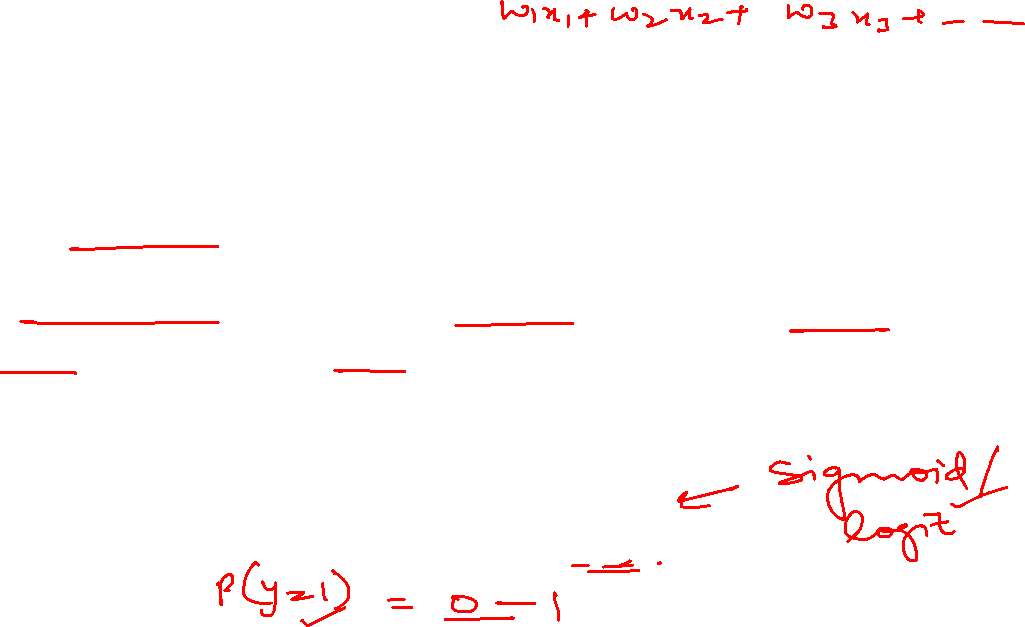 w1x1 + w2x2 + w3x3 + - -
sigmoid/
logit
P(y=1) = 0 - 1